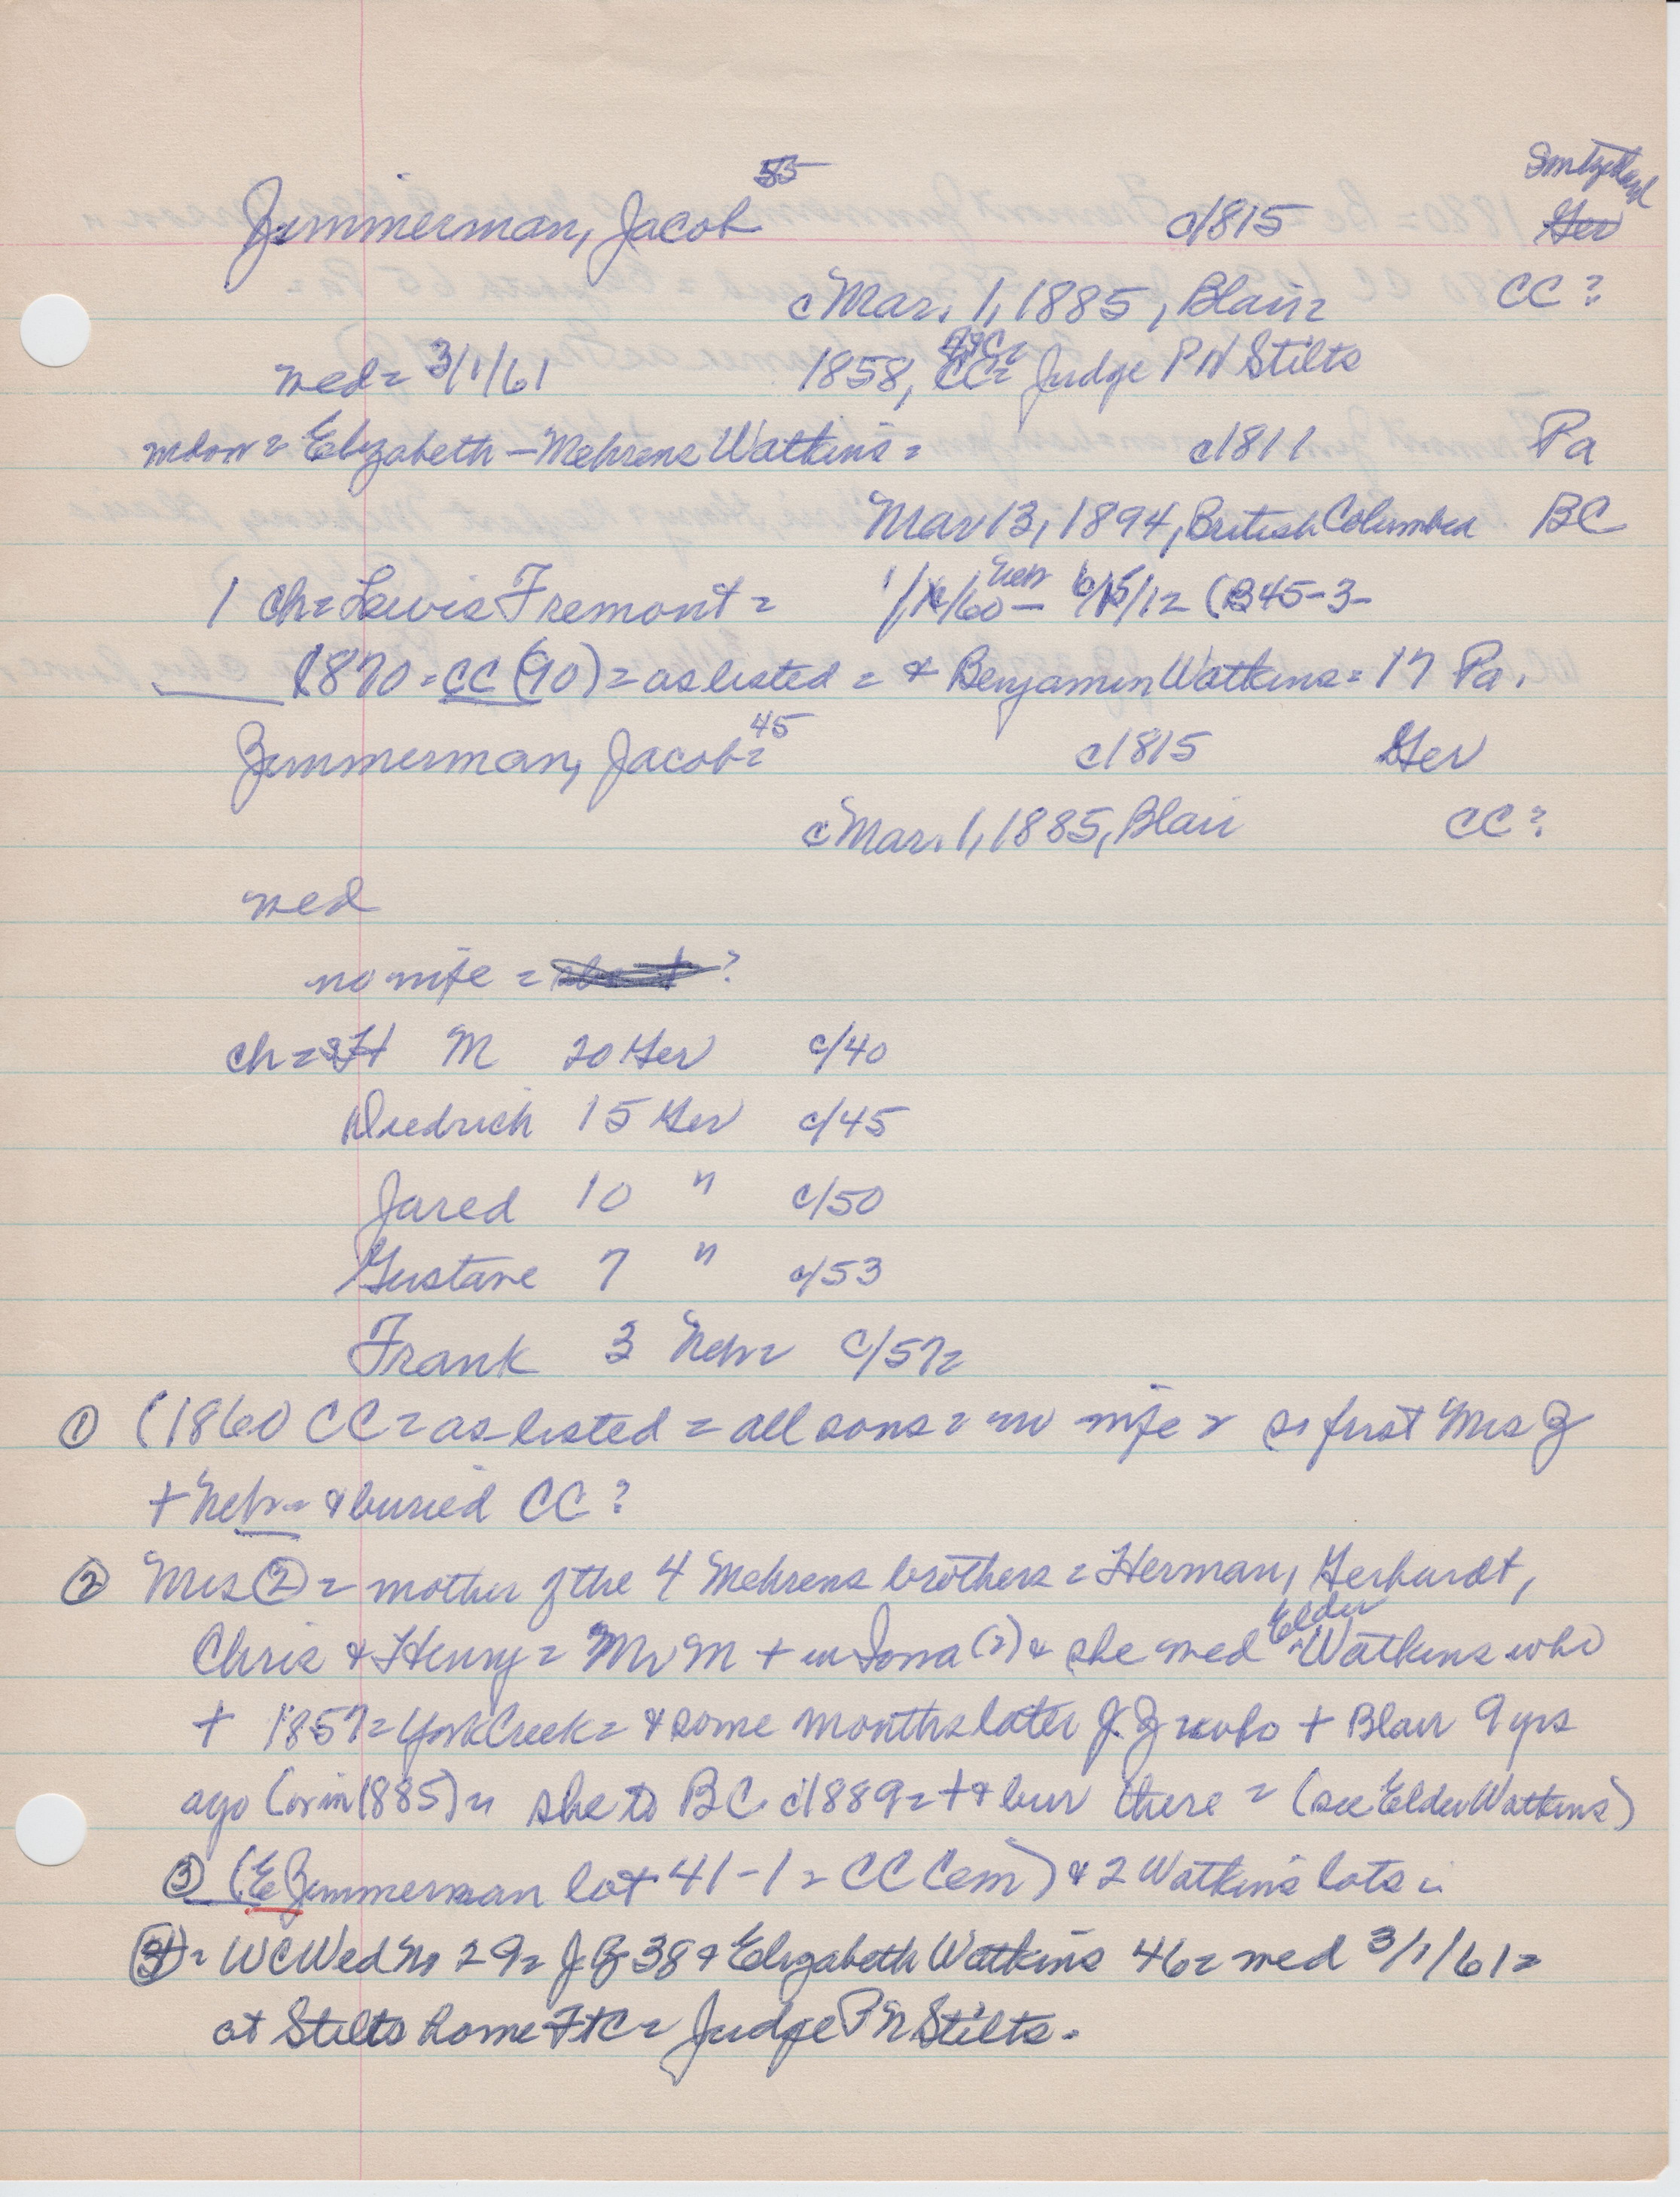 55 Switzerland
Zimmerman, Jacob c/1815 Ger
c Mar. 1, 1885, Blair= CC?
wed= 3/1/61 1858, CC= Judge P N Stilts
widow= Elizabeth - Mehrens Watkins= c1811 Pa
Mar 13, 1894, British Columbia BC
1 ch= Lewis Fremont = 1/ /60 - Neb 6/15/12 (B45-3-
(1870 = CC (90) = as listed = & Benjamin Watkins = 17 Pa.
Zimmerman, Jacob= 45 c1815 Ger
c Mar. 1, 1885, Blair CC?
wed
no wife = ?
ch= H M 20 Ger c/40
Diedrich 15 Ger c/45
Jared 10 " c/50
Gustave 7 " c/53
Frank 3 Nebr= c/57=
① (1860 CC = as listed = all sons = no wife = so first Mrs Z
+ Nebr= & buried CC?
② Mrs ② = mother of the 4 Mehrens brothers = Herman, Gerhardt,
Chris & Henry = Mr M + in Iowa (?) & she wed Elder Watkins who
+ 1857 = York Creek = & some months later J. Z who + Blair 9 yrs
ago (or in 1885) = she to BC c1889 = + & bur there = (see Elder Watkins)
③ (E Zimmerman lot 41-1 = CC Cem) & 2 Watkins lots =
④ = WC Wed No 29 = J Z 38 & Elizabeth Watkins 46 = wed 3/1/61 =
at Stilts home FtC = Judge P N Stilts.